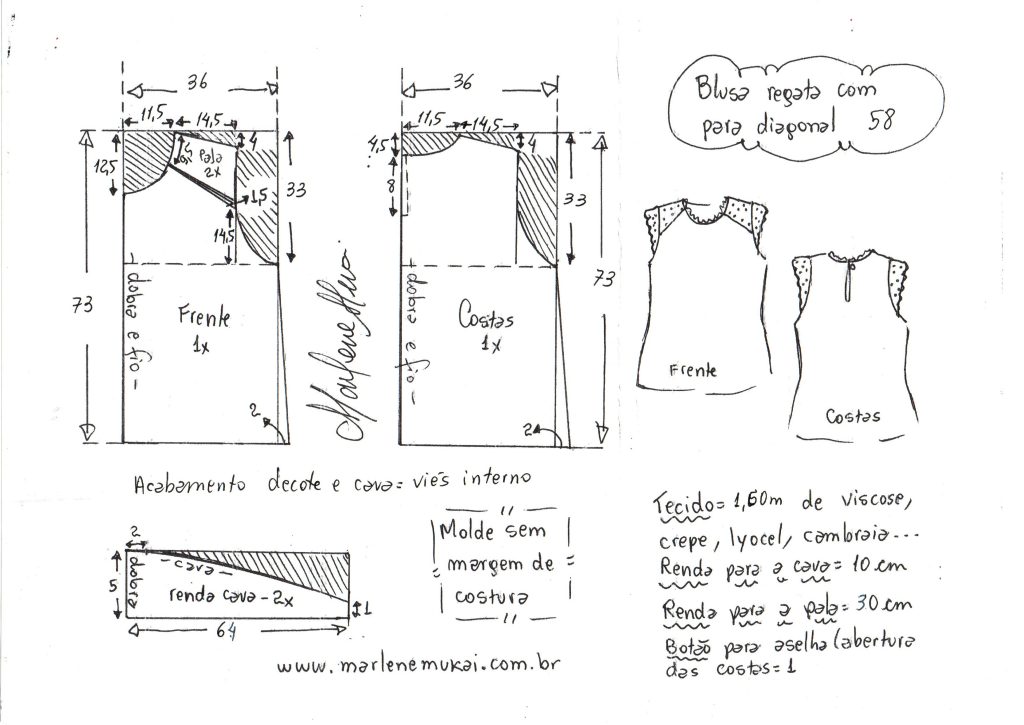 Blusa regata com
para diagonal 58
36
11,5 14,5
4
12,5
4
pala
2x
1,5
14,5
33
73
dobra e fio
Frente
1x
2
Marlene Mukai
36
11,5 14,5
4,5
4
8
33
73
dobra e fio
Costas
1x
2
Frente
Costas
Acabamento decote e cava= viés interno
2
5
dobra
cava
renda cava-2x
1
64
Molde sem
margem de
costura
Tecido= 1,60m de viscose,
crepe, lyocel, cambraia...
Renda para a cava= 10 cm
Renda para a pala= 30 cm
Botão para aselha (abertura
das costas= 1
www.marlenemukai.com.br